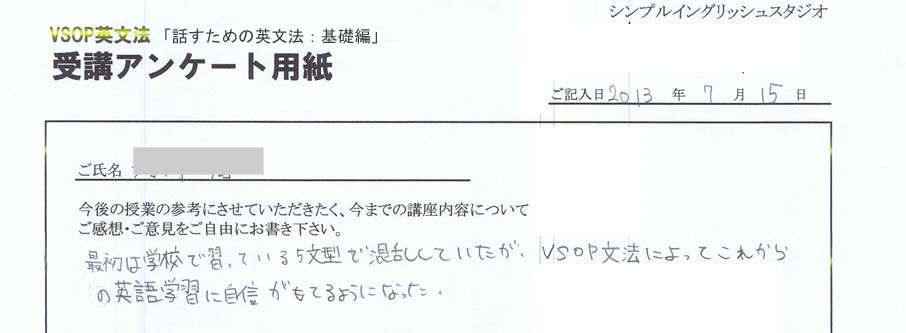 シンプルイングリッシュスタジオ
VSOP英文法 「話すための英文法：基礎編」
受講アンケート用紙
ご記入日 2013 年 7 月 15 日
ご氏名
今後の授業の参考にさせていただきたく、今までの講座内容について
ご感想・ご意見をご自由にお書き下さい。
最初は学校で習っている5文型で混乱していたが、VSOP文法によってこれから
の英語学習に自信がもてるようになった。